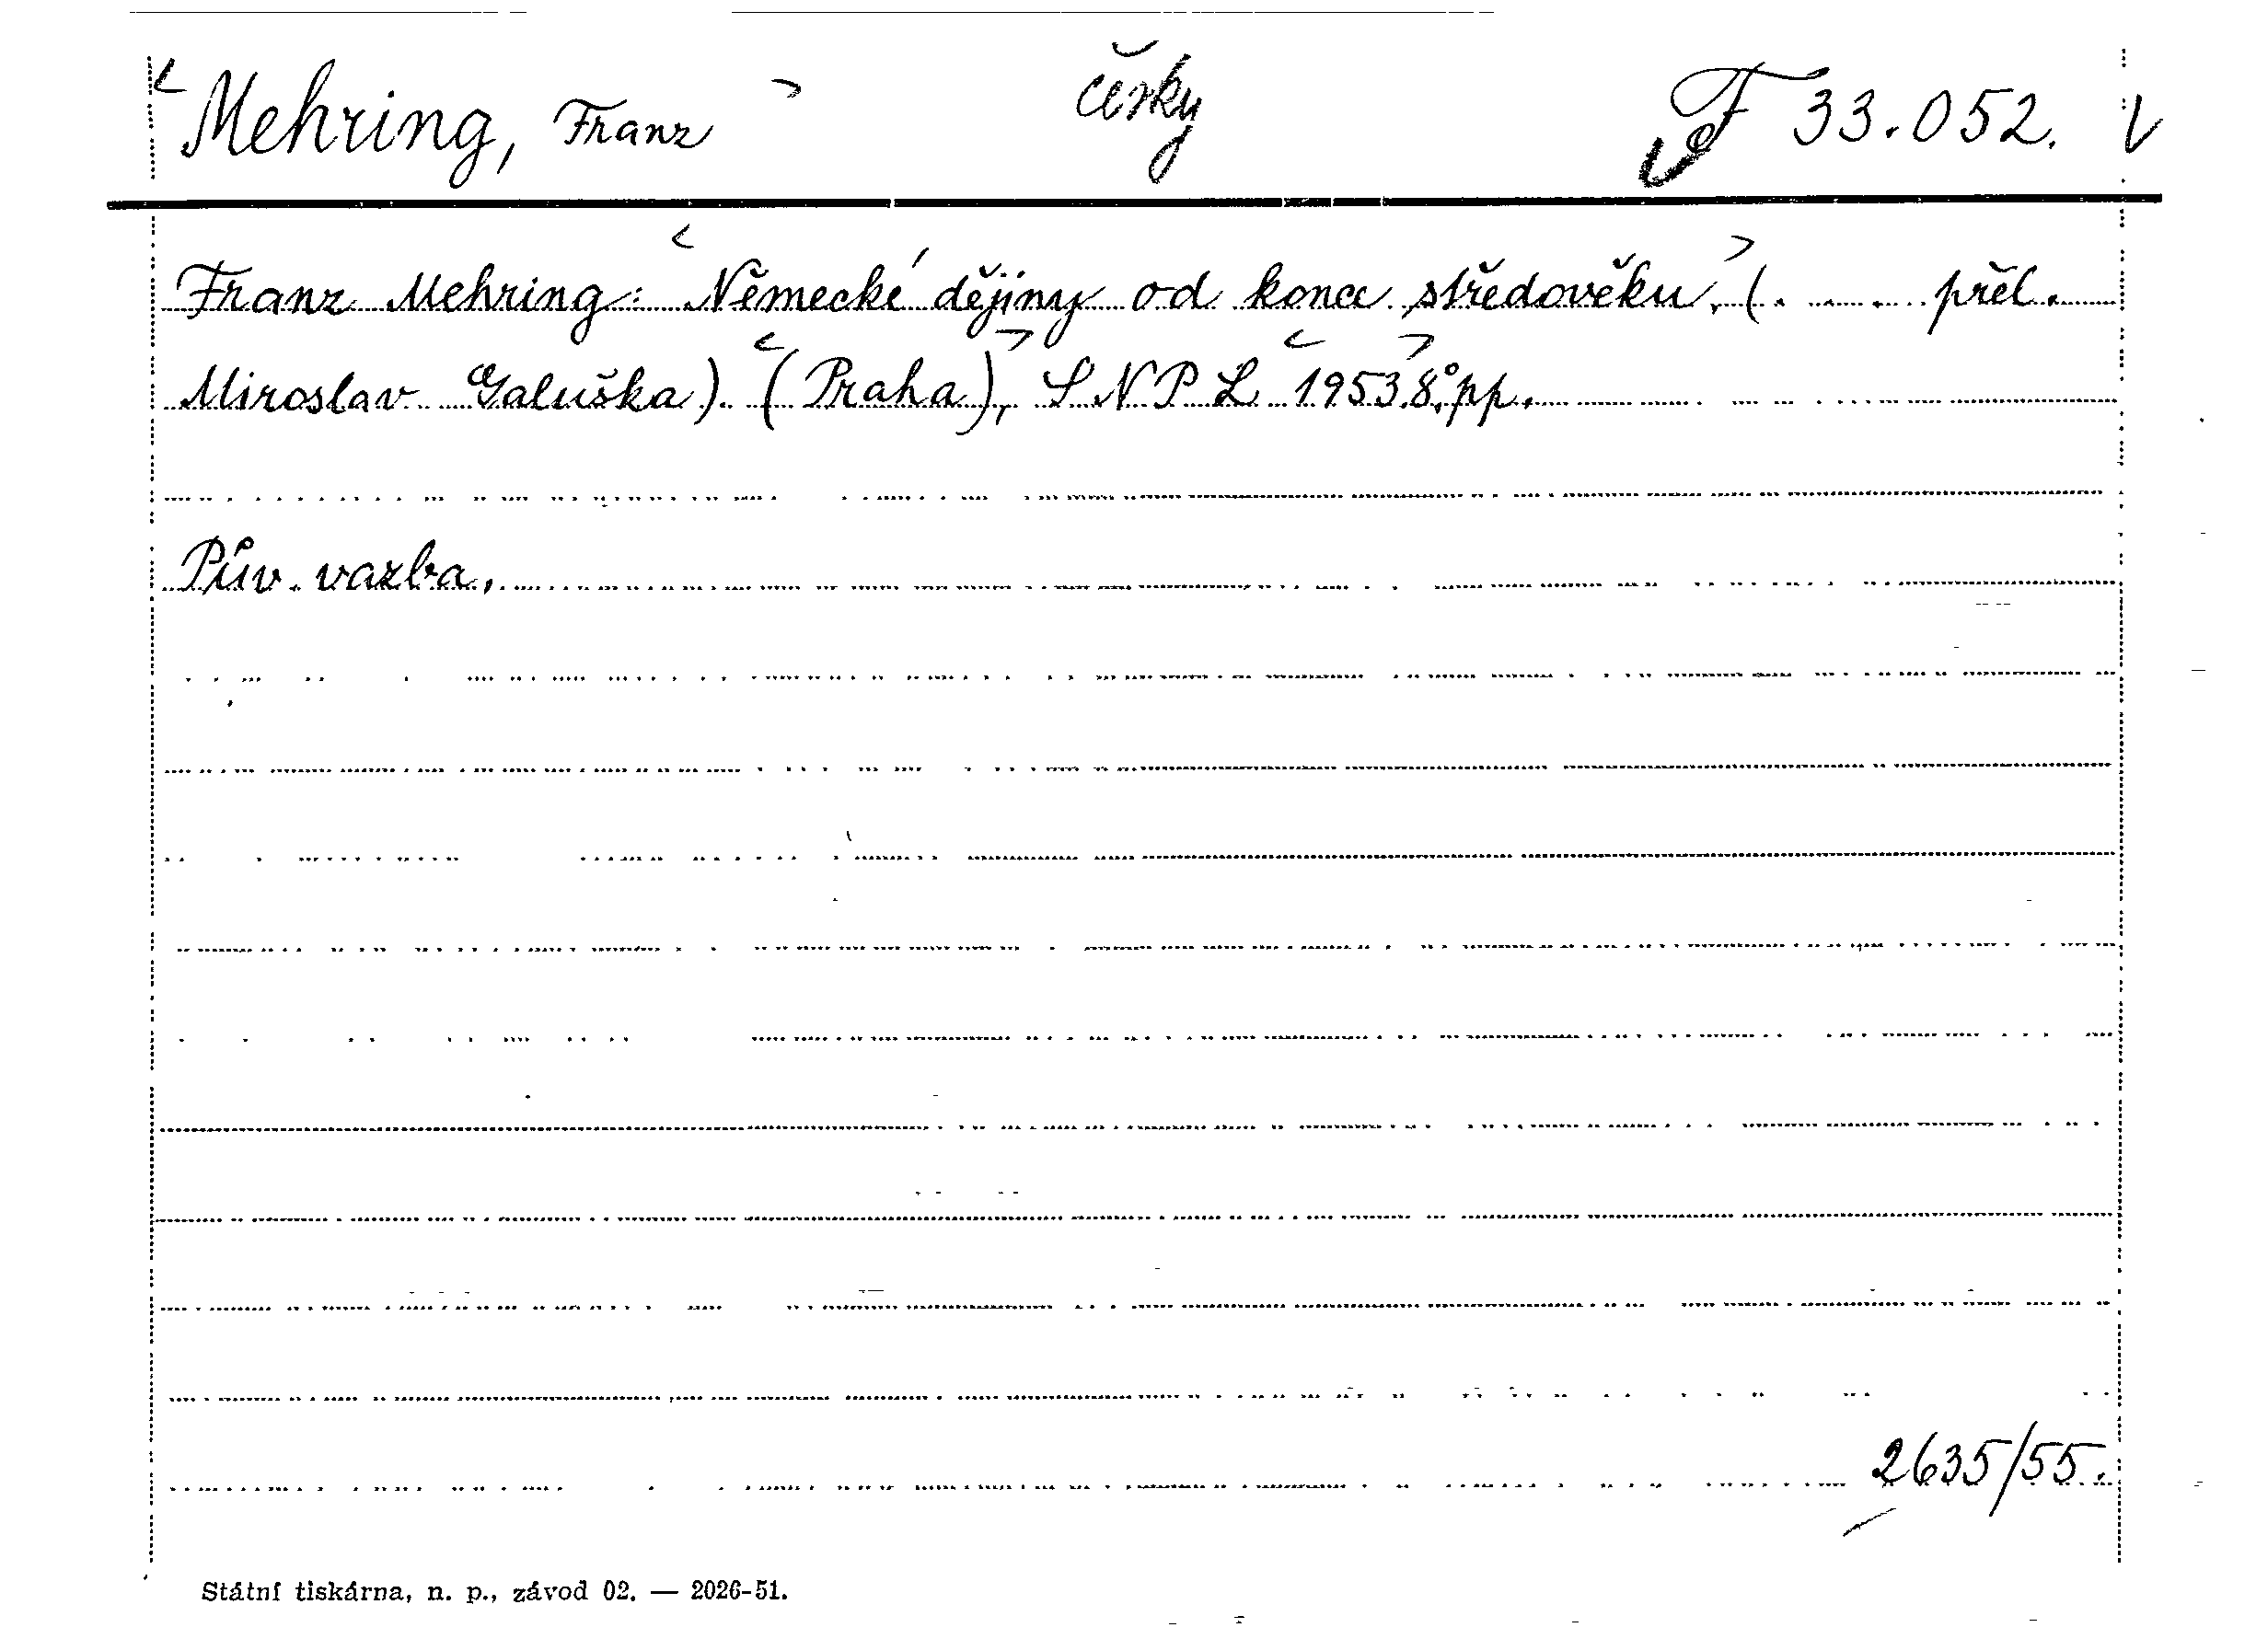 Mehring, Franz česky F 33.052. V
Franz Mehring: Německé dějiny od konce středověku, (. . . . přel.
Miroslav Galuška). (Praha), SNPL 1953. 8°, pp.
Pův. vazba.
2635/55.
Státní tiskárna, n. p., závod 02. — 2026-51.